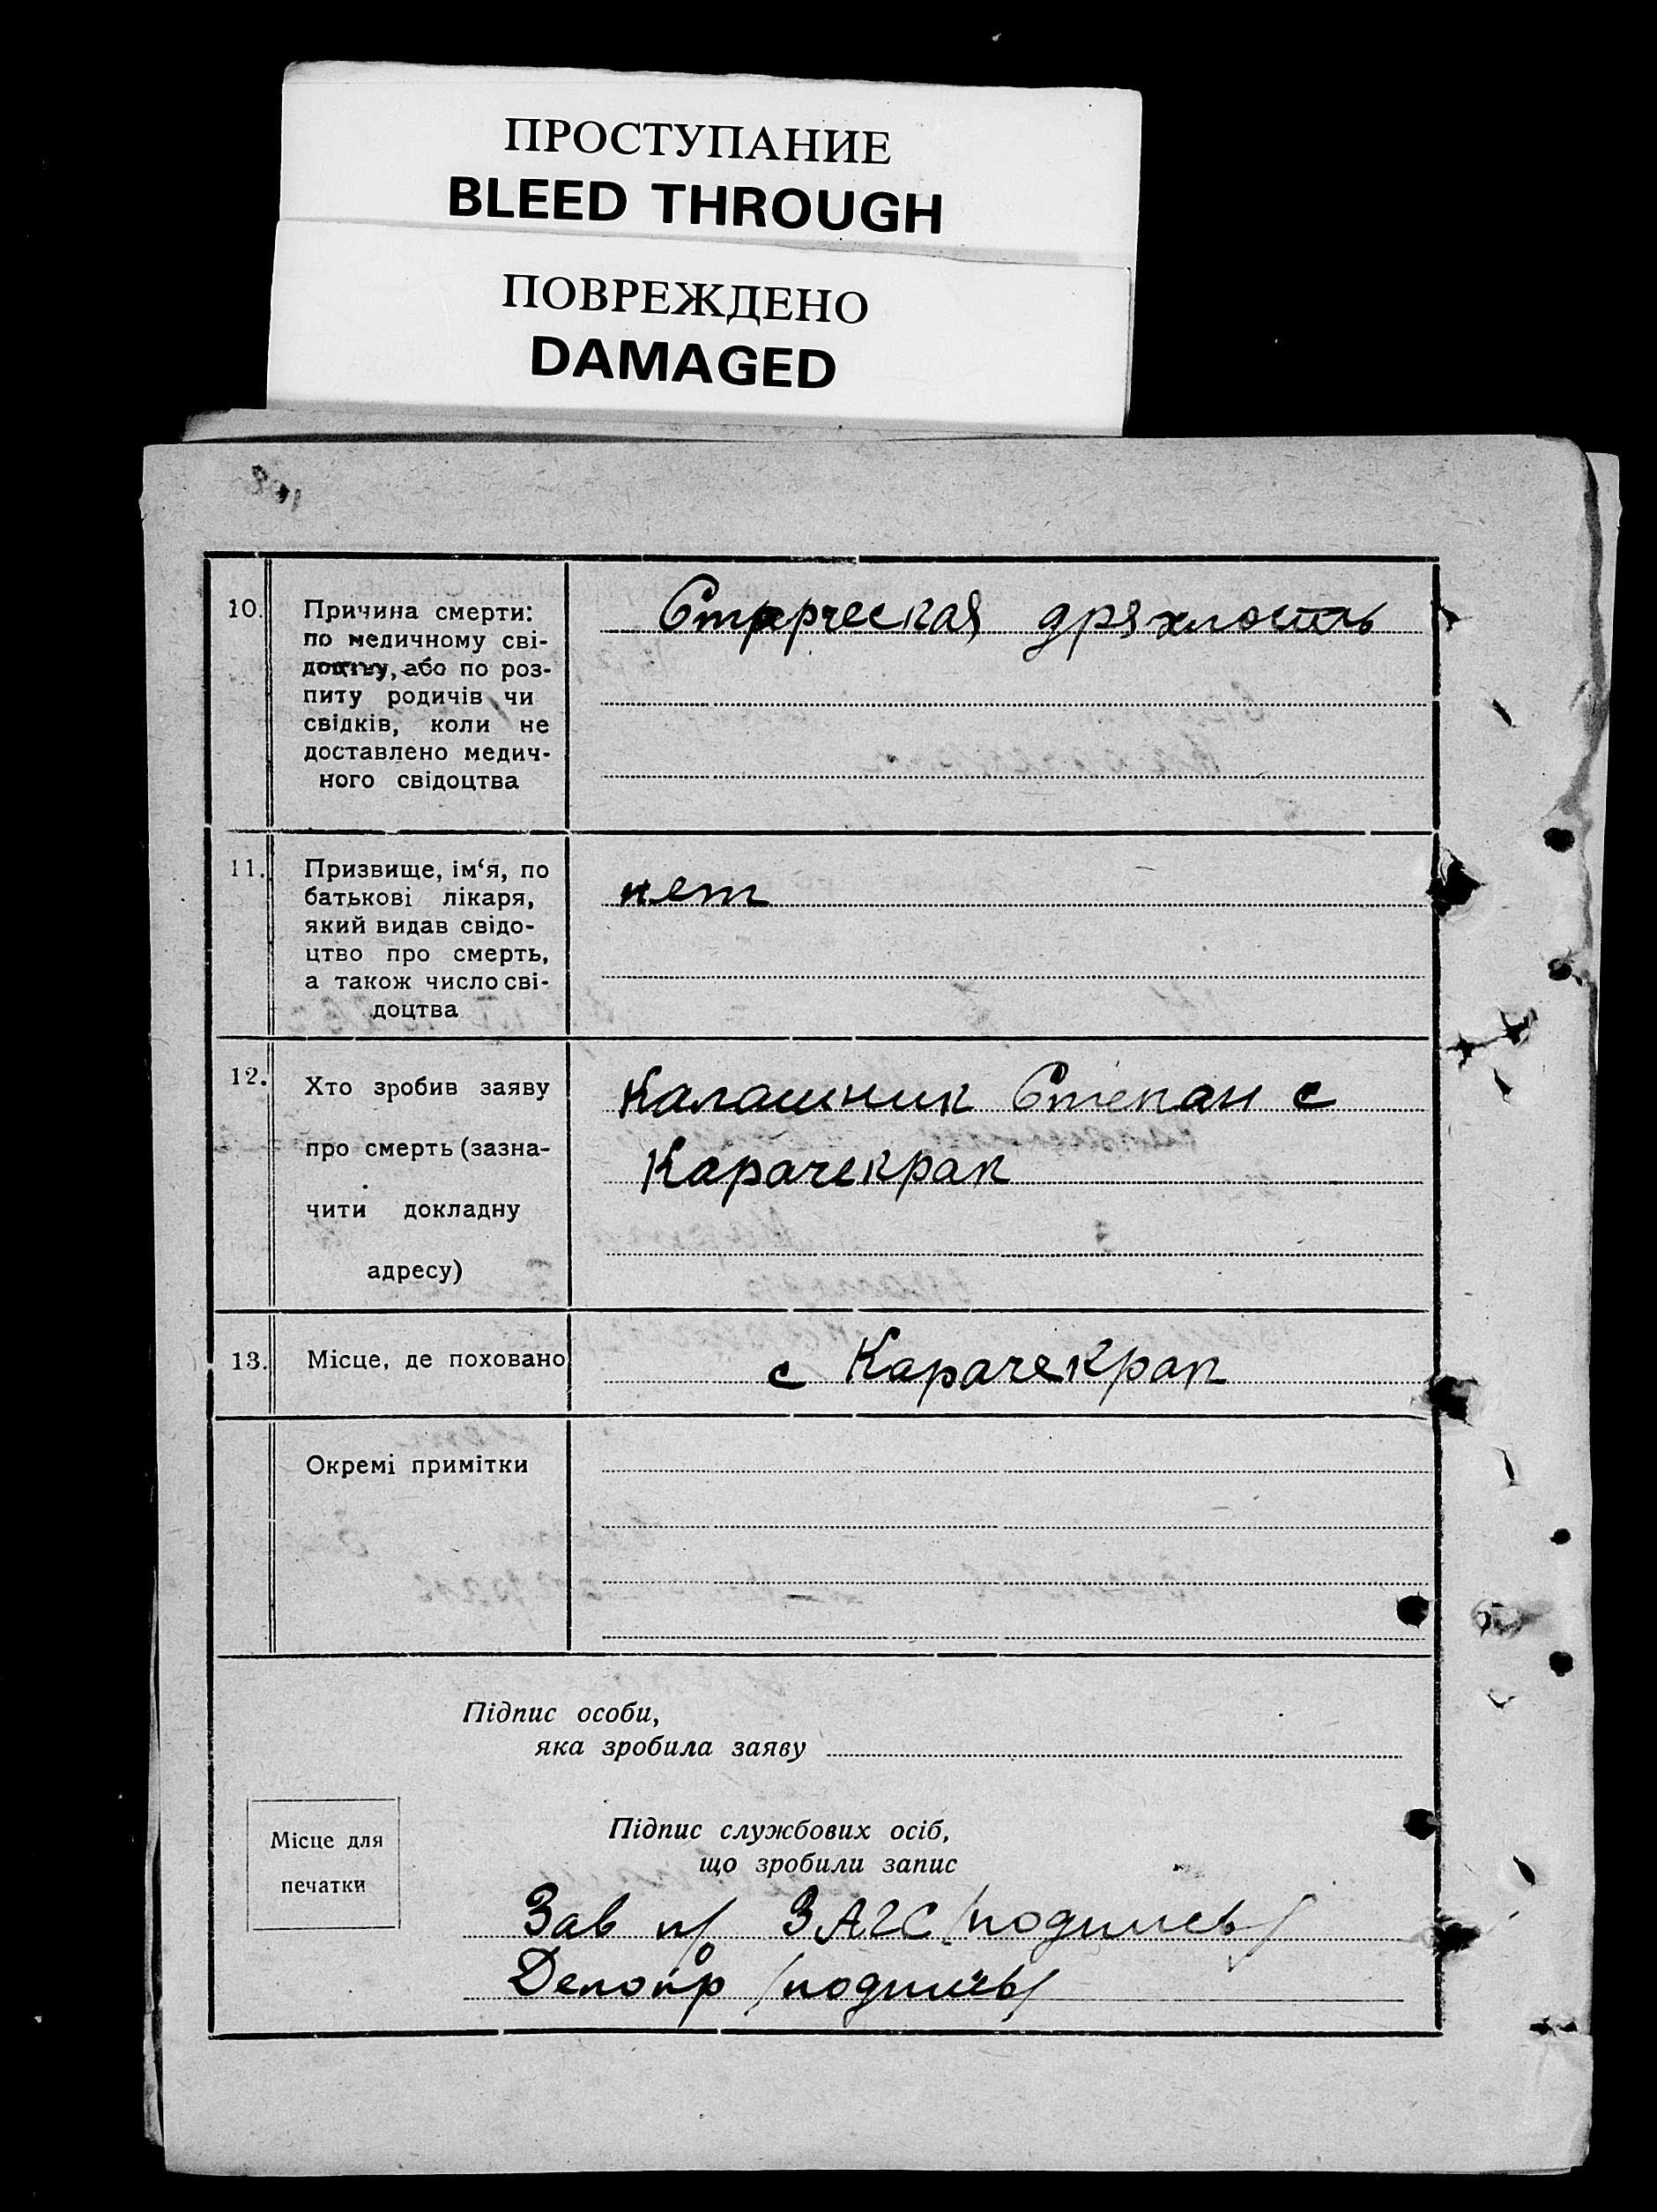 ПРОСТУПАНИЕ
BLEED THROUGH
ПОВРЕЖДЕНО
DAMAGED
10. Причина смерти:
по медичному сві-
доцтву, або по роз-
питу родичів чи
свідків, коли не
доставлено медич-
ного свідоцтва
Старческая дряхлость
11. Призвище, ім‘я, по
батькові лікаря,
який видав свідо-
цтво про смерть,
а також число сві-
доцтва
нет
12. Хто зробив заяву
про смерть (зазна-
чити докладну
адресу)
Калашник Степан с
Карачекрак
13. Місце, де поховано
с Карачекрак
Окремі примітки
Підпис особи,
яка зробила заяву
Місце для
печатки
Підпис службових осіб,
що зробили запис
Зав п/ ЗАГС /подпись/
Делопр /подпись/